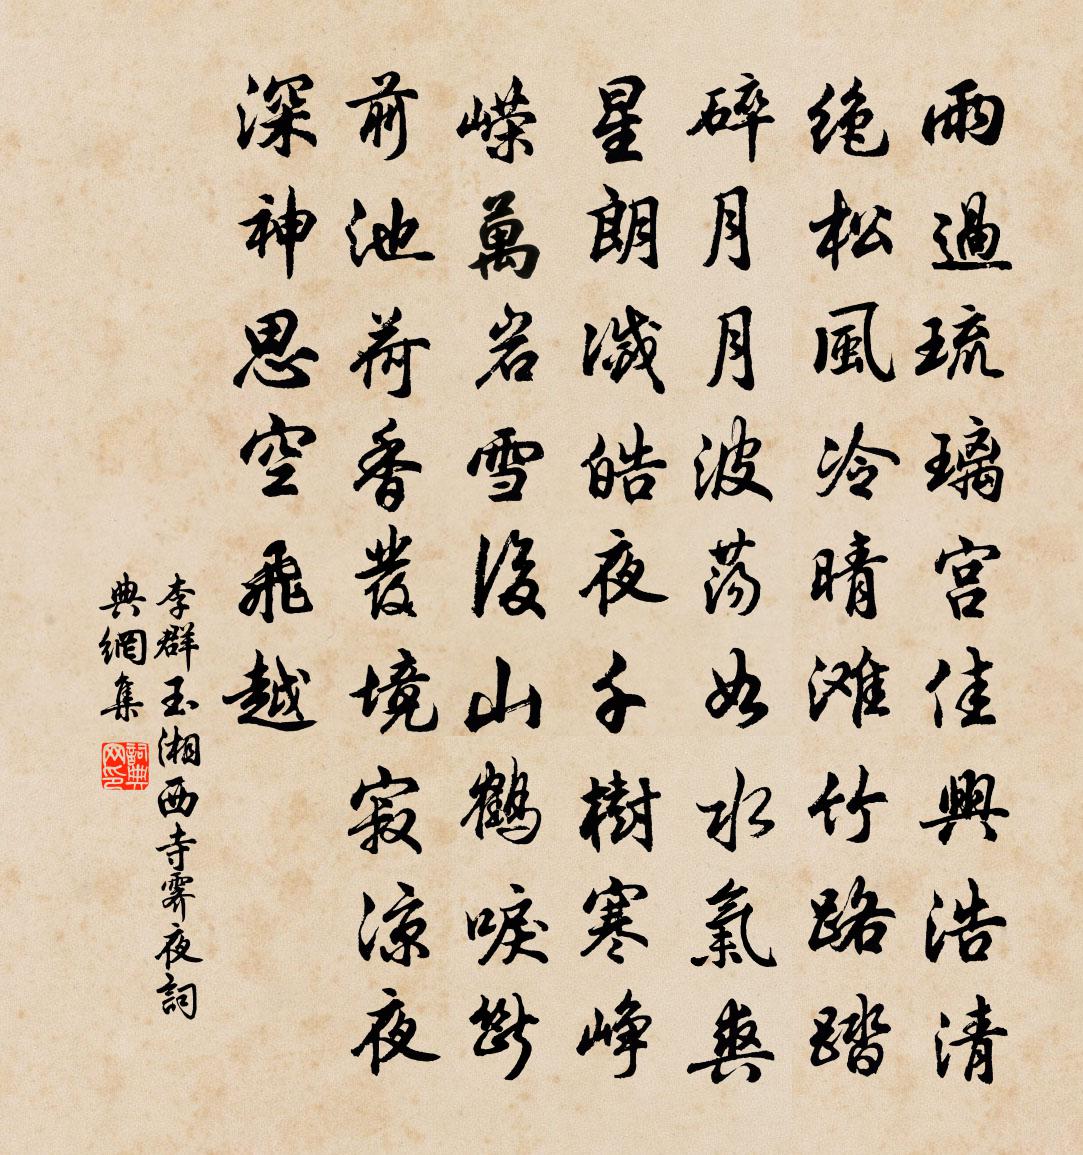 雨過琉璃宮佳興浩清
絕松風冷晴灘竹路踏
碎月月波蕩如水氣爽
星朗滅皓夜千樹寒崢
嶸萬岩雪後山鶴唳斷
前池荷香發境寂涼夜
深神思空飛越
李群玉湘西寺霽夜詞
典網集
詞典
网印